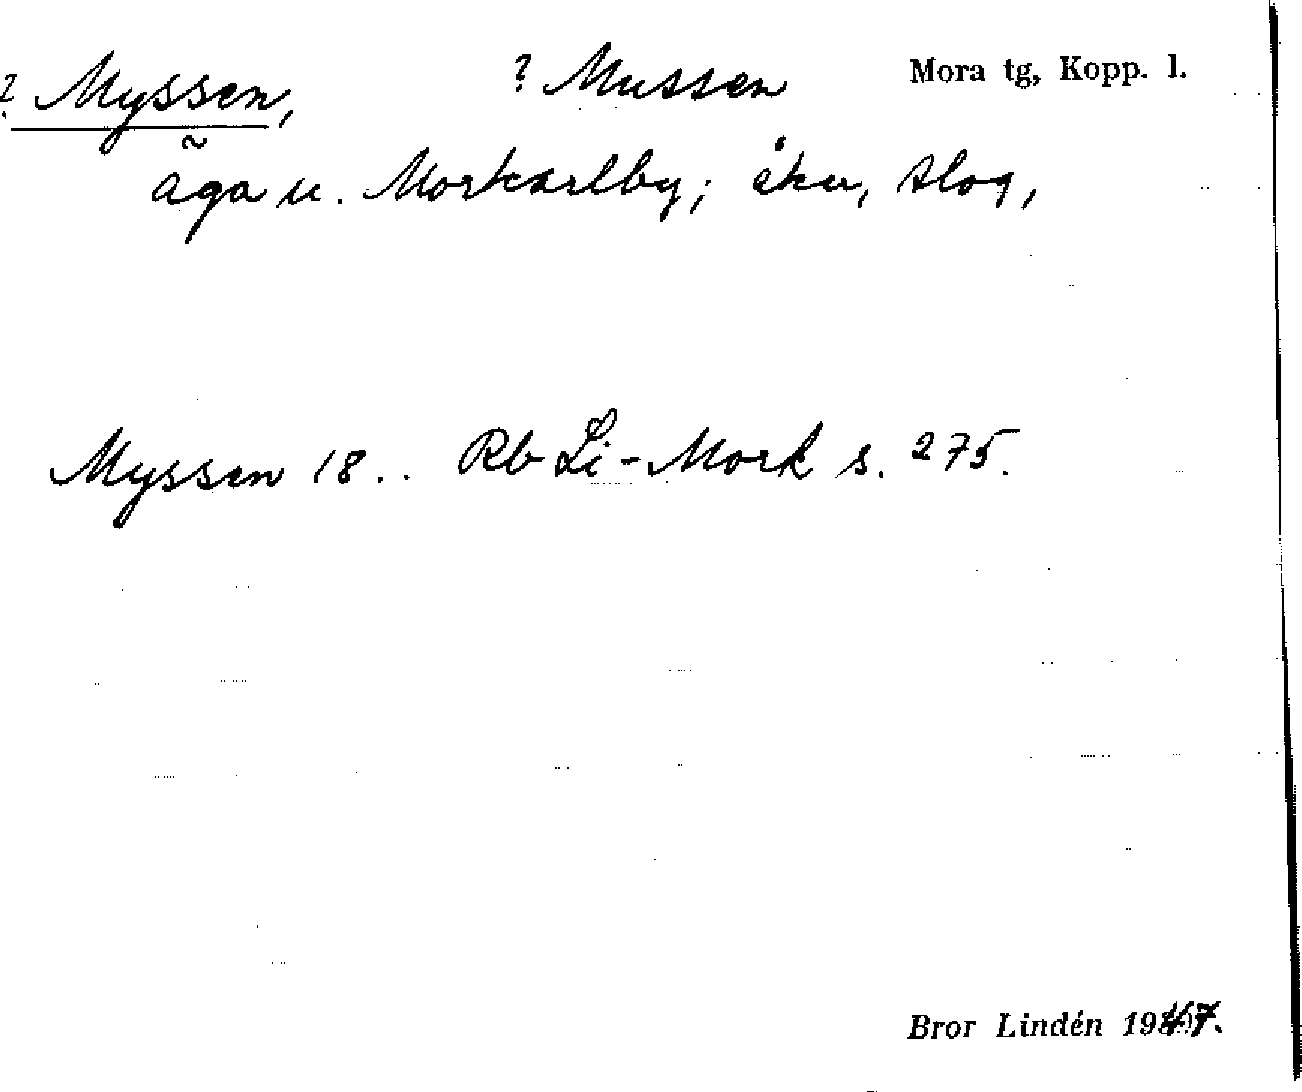 ? Myssen, ? Mussen Mora tg, Kopp. l.
äga u. Morkarlby; åkr, slog,
Myssen 18.. Rb Li-Mork s. 275.
Bror Lindén 1947.